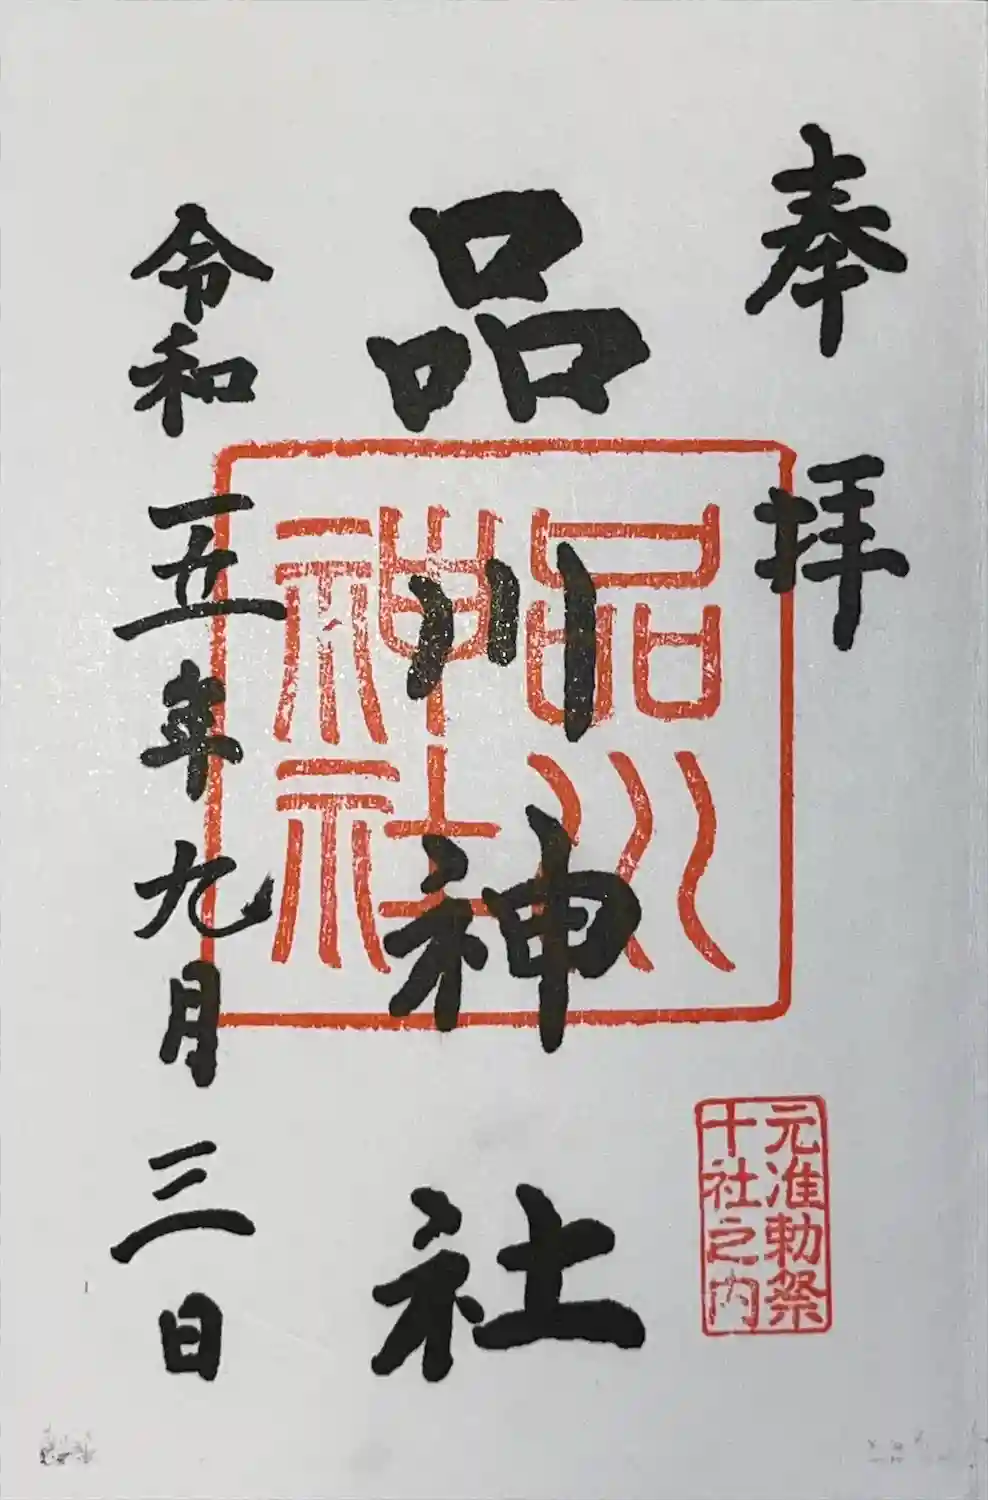 奉拝
品川神社
品川
神社
元准勅祭
十社之内
令和五年九月三日